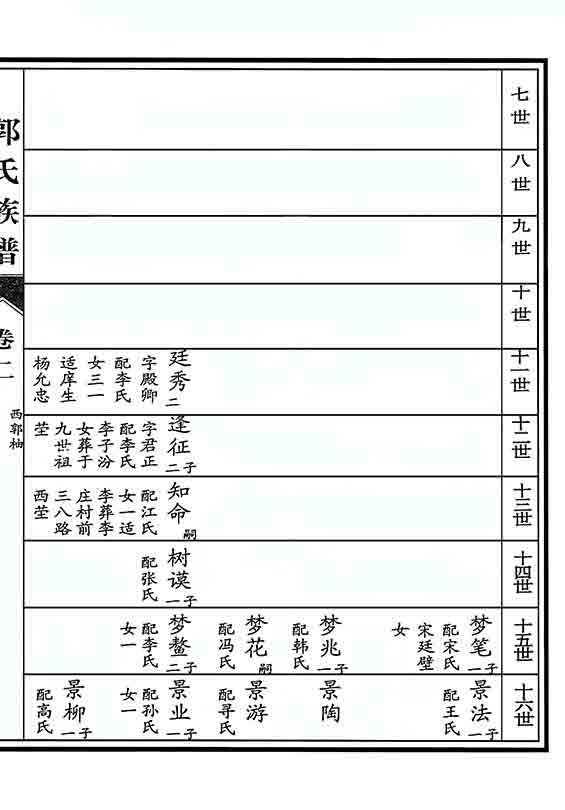 七世
八世
九世
十世
十一世
廷秀二
字殿卿
配李氏
女三一
适庠生
杨允忠
十二世
逢征二子
字君正
配李氏
李子汾
女葬于
九世祖
茔
十三世
知命嗣
配江氏
女一适
李葬李
庄村前
三八路
西茔
十四世
树谟一子
配张氏
十五世
梦笔一子
配宋氏
宋廷壁
女
梦兆一子
配韩氏
梦花嗣
配冯氏
梦鳌二子
配李氏
女一
十六世
景法一子
配王氏
景陶
景游
配寻氏
景业一子
配孙氏
女一
景柳一子
配高氏
郭氏族谱
卷二
西郭柚